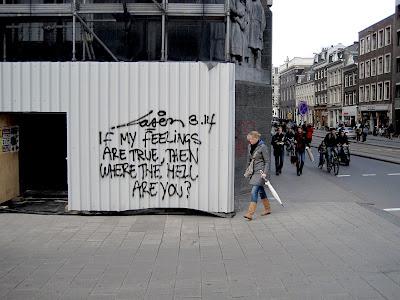 Laser 3.14
IF MY FEELINGS
ARE TRUE, THEN
WHERE THE HELL
ARE YOU?